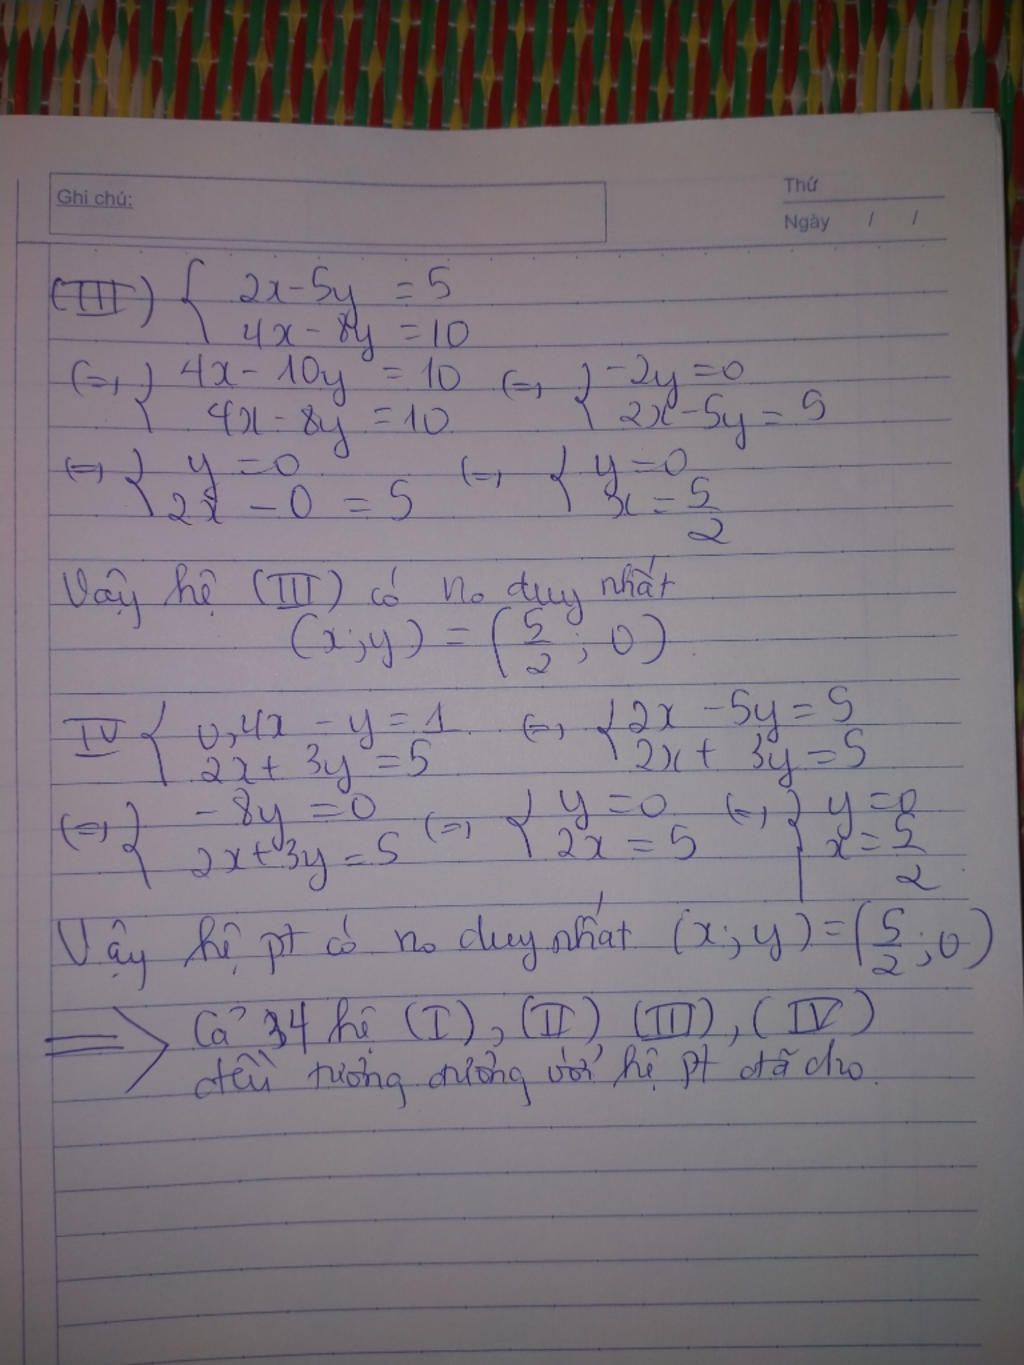 Ghi chú:
Thứ
Ngày / /
(III) { 2x - 5y = 5
4x - 8y = 10
(=) { 4x - 10y = 10 (=) { -2y = 0
4x - 8y = 10 2x - 5y = 5
(=) { y = 0 (=) { y = 0
2x - 0 = 5 x = 5/2
Vậy hệ (III) có no duy nhất
(x; y) = (5/2; 0)
IV { 0,4x - y = 1 (=) { 2x - 5y = 5
2x + 3y = 5 2x + 3y = 5
(=) { -8y = 0 (=) { y = 0 (=) { y = 0
2x + 3y = 5 2x = 5 x = 5/2
Vậy hệ pt có no duy nhất (x; y) = (5/2; 0)
=> Cả 4 hệ (I), (II) (III), (IV)
đều tương đương với hệ pt đã cho.